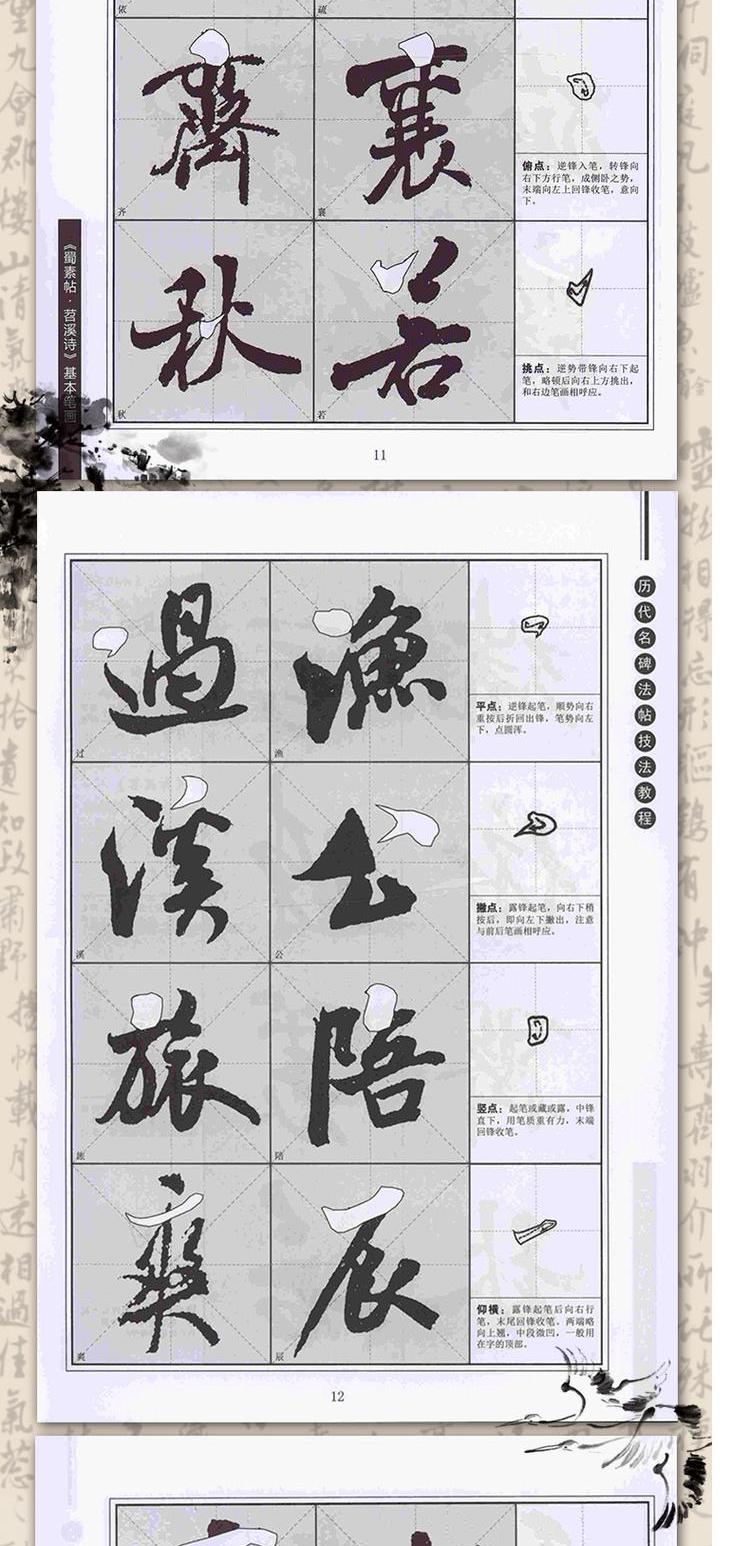 依 疏
齊 襄
俯点：逆锋入笔，转锋向
右下方行笔，成侧卧之势，
末端向左上回锋收笔，意向
下。
齐 襄
秋 若
挑点：逆势带锋向右下起
笔，略顿后向右上方挑出，
和右边笔画相呼应。
秋 若
《蜀素帖·苕溪诗》基本笔画
11
历代名碑法帖技法教程
過 漁
平点：逆锋起笔，顺势向右
重按后折回出锋，笔势向左
下，点圆浑。
过 渔
溪 公
撇点：露锋起笔，向右下稍
按后，即向左下撇出，注意
与前后笔画相呼应。
溪 公
旅 陪
竖点：起笔或藏或露，中锋
直下，用笔质重有力，末端
回锋收笔。
旅 陪
爽 辰
仰横：露锋起笔后向右行
笔，末尾回锋收笔。两端略
向上翘，中段微凹，一般用
在字的顶部。
爽 辰
12